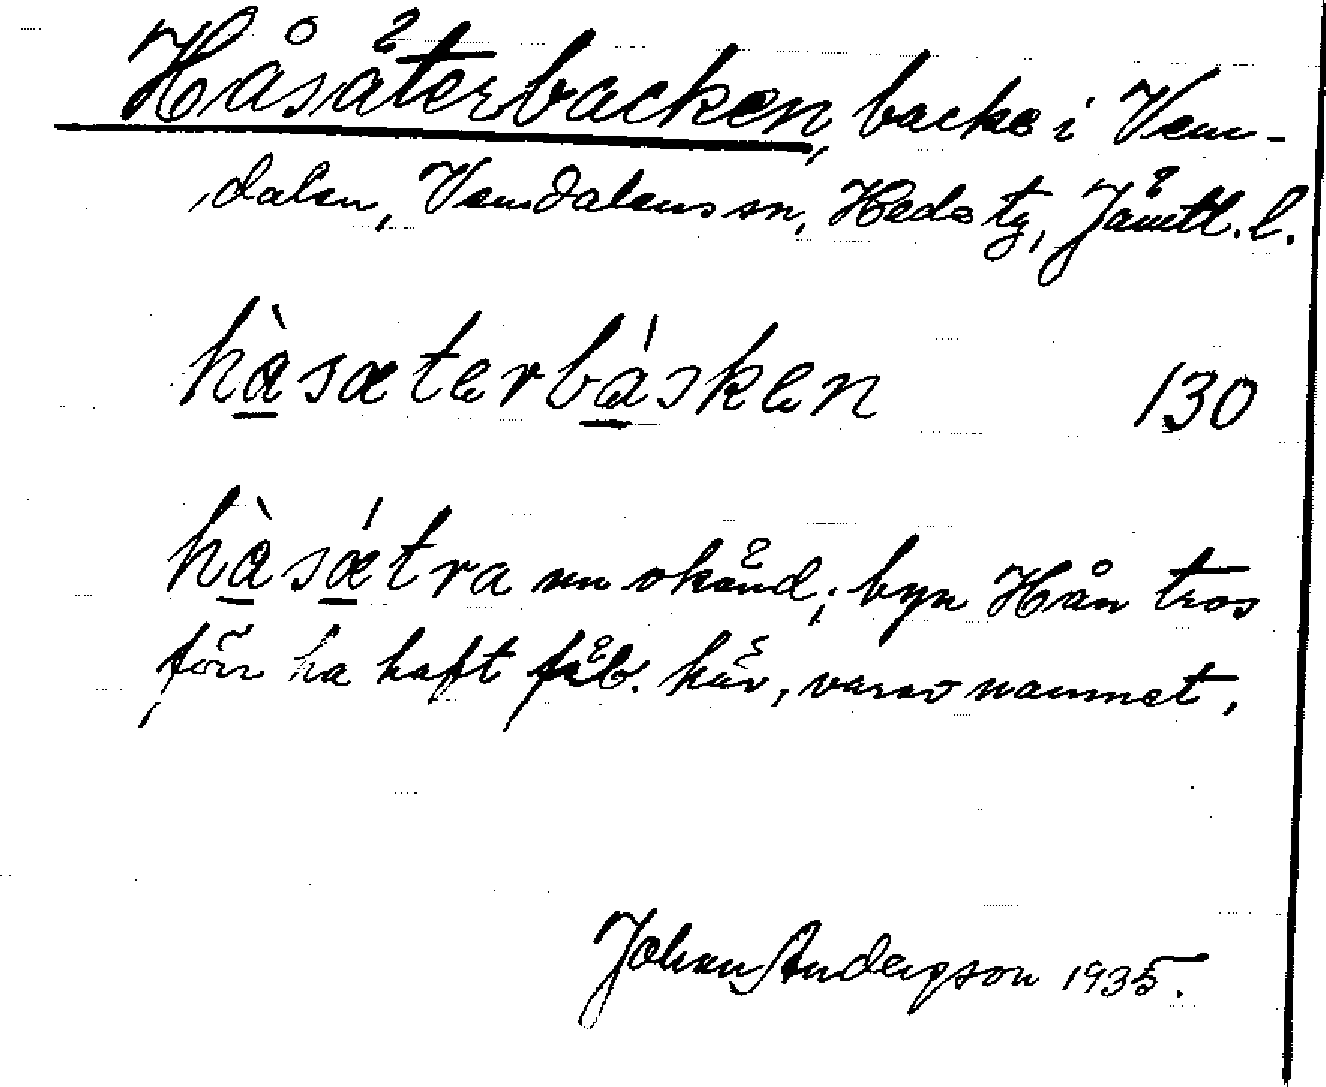 Håsäterbacken, backe i Vem-
dalen, Vemdalens sn, Hede tg, Jämtl. l.
hàsæterbásken 130
hàsǽtra nu okänd; byn Hån tros
för ha haft fäb. här, varav namnet.
Johan Anderson 1935.